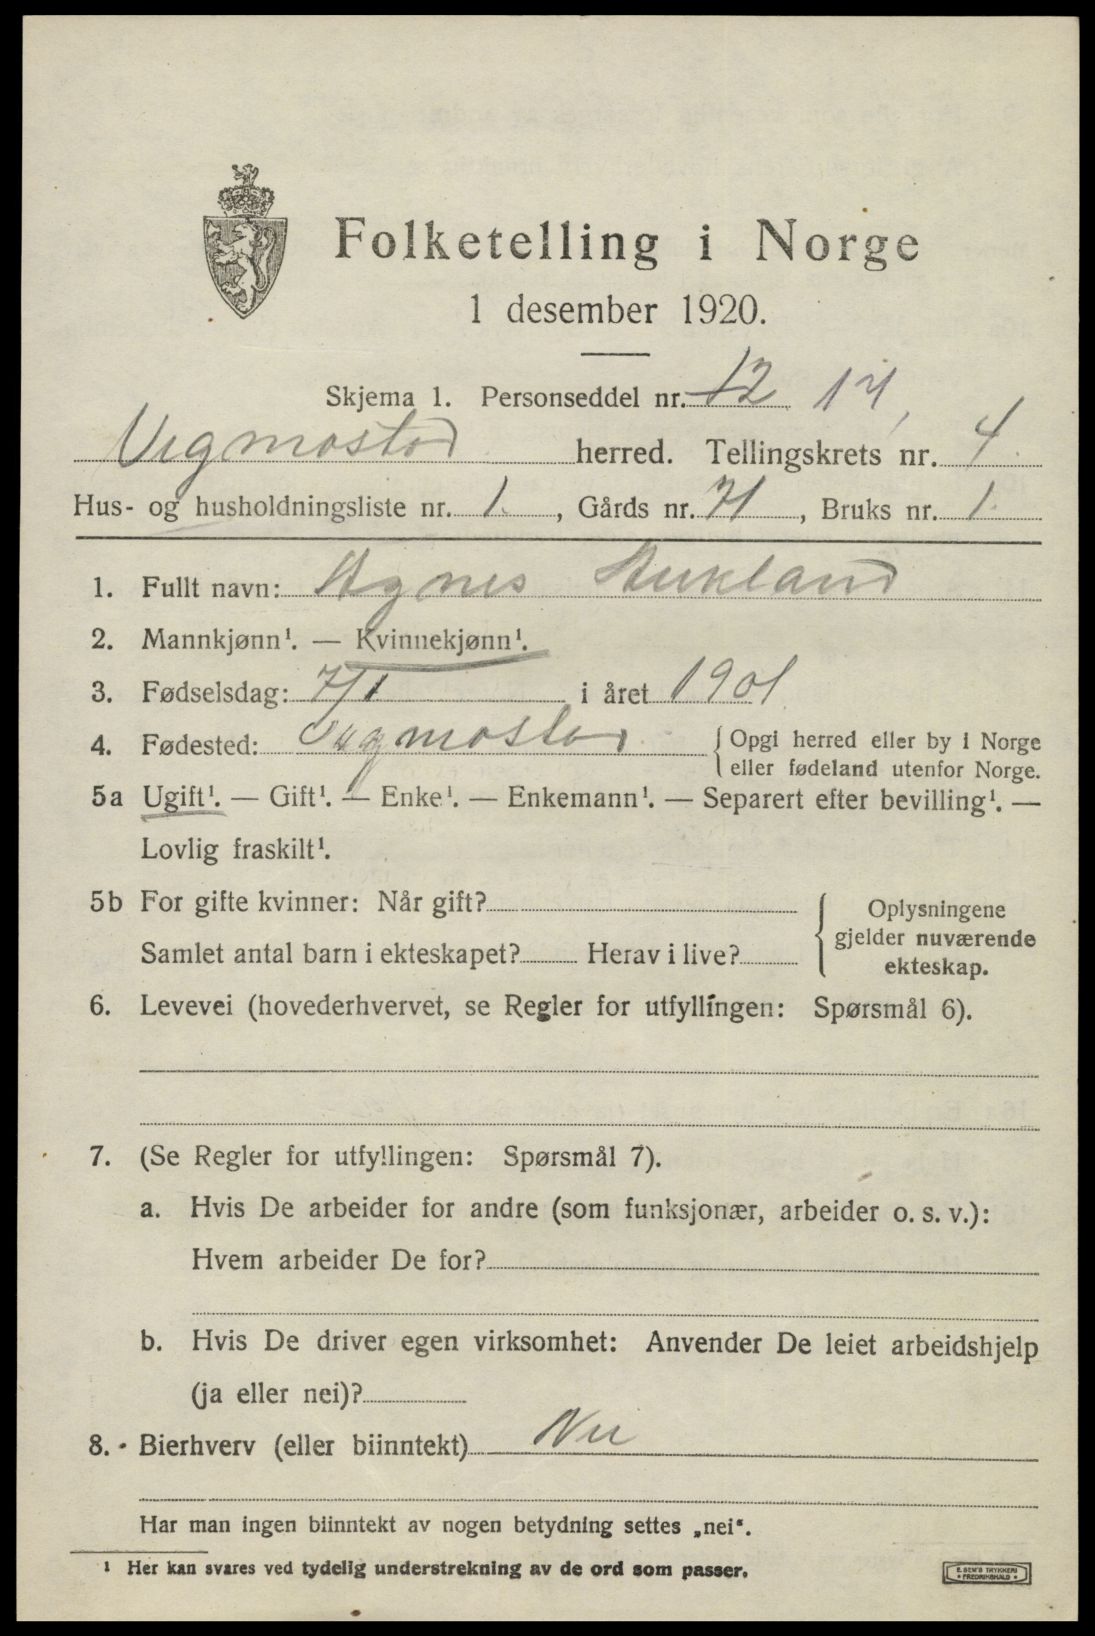 Folketelling i Norge
1 desember 1920.
Skjema 1. Personseddel nr. 12 14
Vegmostad herred. Tellingskrets nr. 4
Hus- og husholdningsliste nr. 1., Gårds nr. 71, Bruks nr. 1.
1. Fullt navn: Agnes Aukland
2. Mannkjønn¹. — Kvinnekjønn¹.
3. Fødselsdag: 7/1 i året 1901
4. Fødested: Vegmostad {Opgi herred eller by i Norge
eller fødeland utenfor Norge.
5a Ugift¹. — Gift¹. — Enke¹. — Enkemann¹. — Separert efter bevilling¹. —
Lovlig fraskilt¹.
5b For gifte kvinner: Når gift?
Samlet antal barn i ekteskapet? Herav i live?
{Oplysningene
gjelder nuværende
ekteskap.
6. Levevei (hovederhvervet, se Regler for utfyllingen: Spørsmål 6).
7. (Se Regler for utfyllingen: Spørsmål 7).
a. Hvis De arbeider for andre (som funksjonær, arbeider o. s. v.):
Hvem arbeider De for?
b. Hvis De driver egen virksomhet: Anvender De leiet arbeidshjelp
(ja eller nei)?
8. Bierhverv (eller biinntekt) Nei
Har man ingen biinntekt av nogen betydning settes „nei“.
¹ Her kan svares ved tydelig understrekning av de ord som passer.
E. SEM'S TRYKKERI
• FREDRIKSHALD •